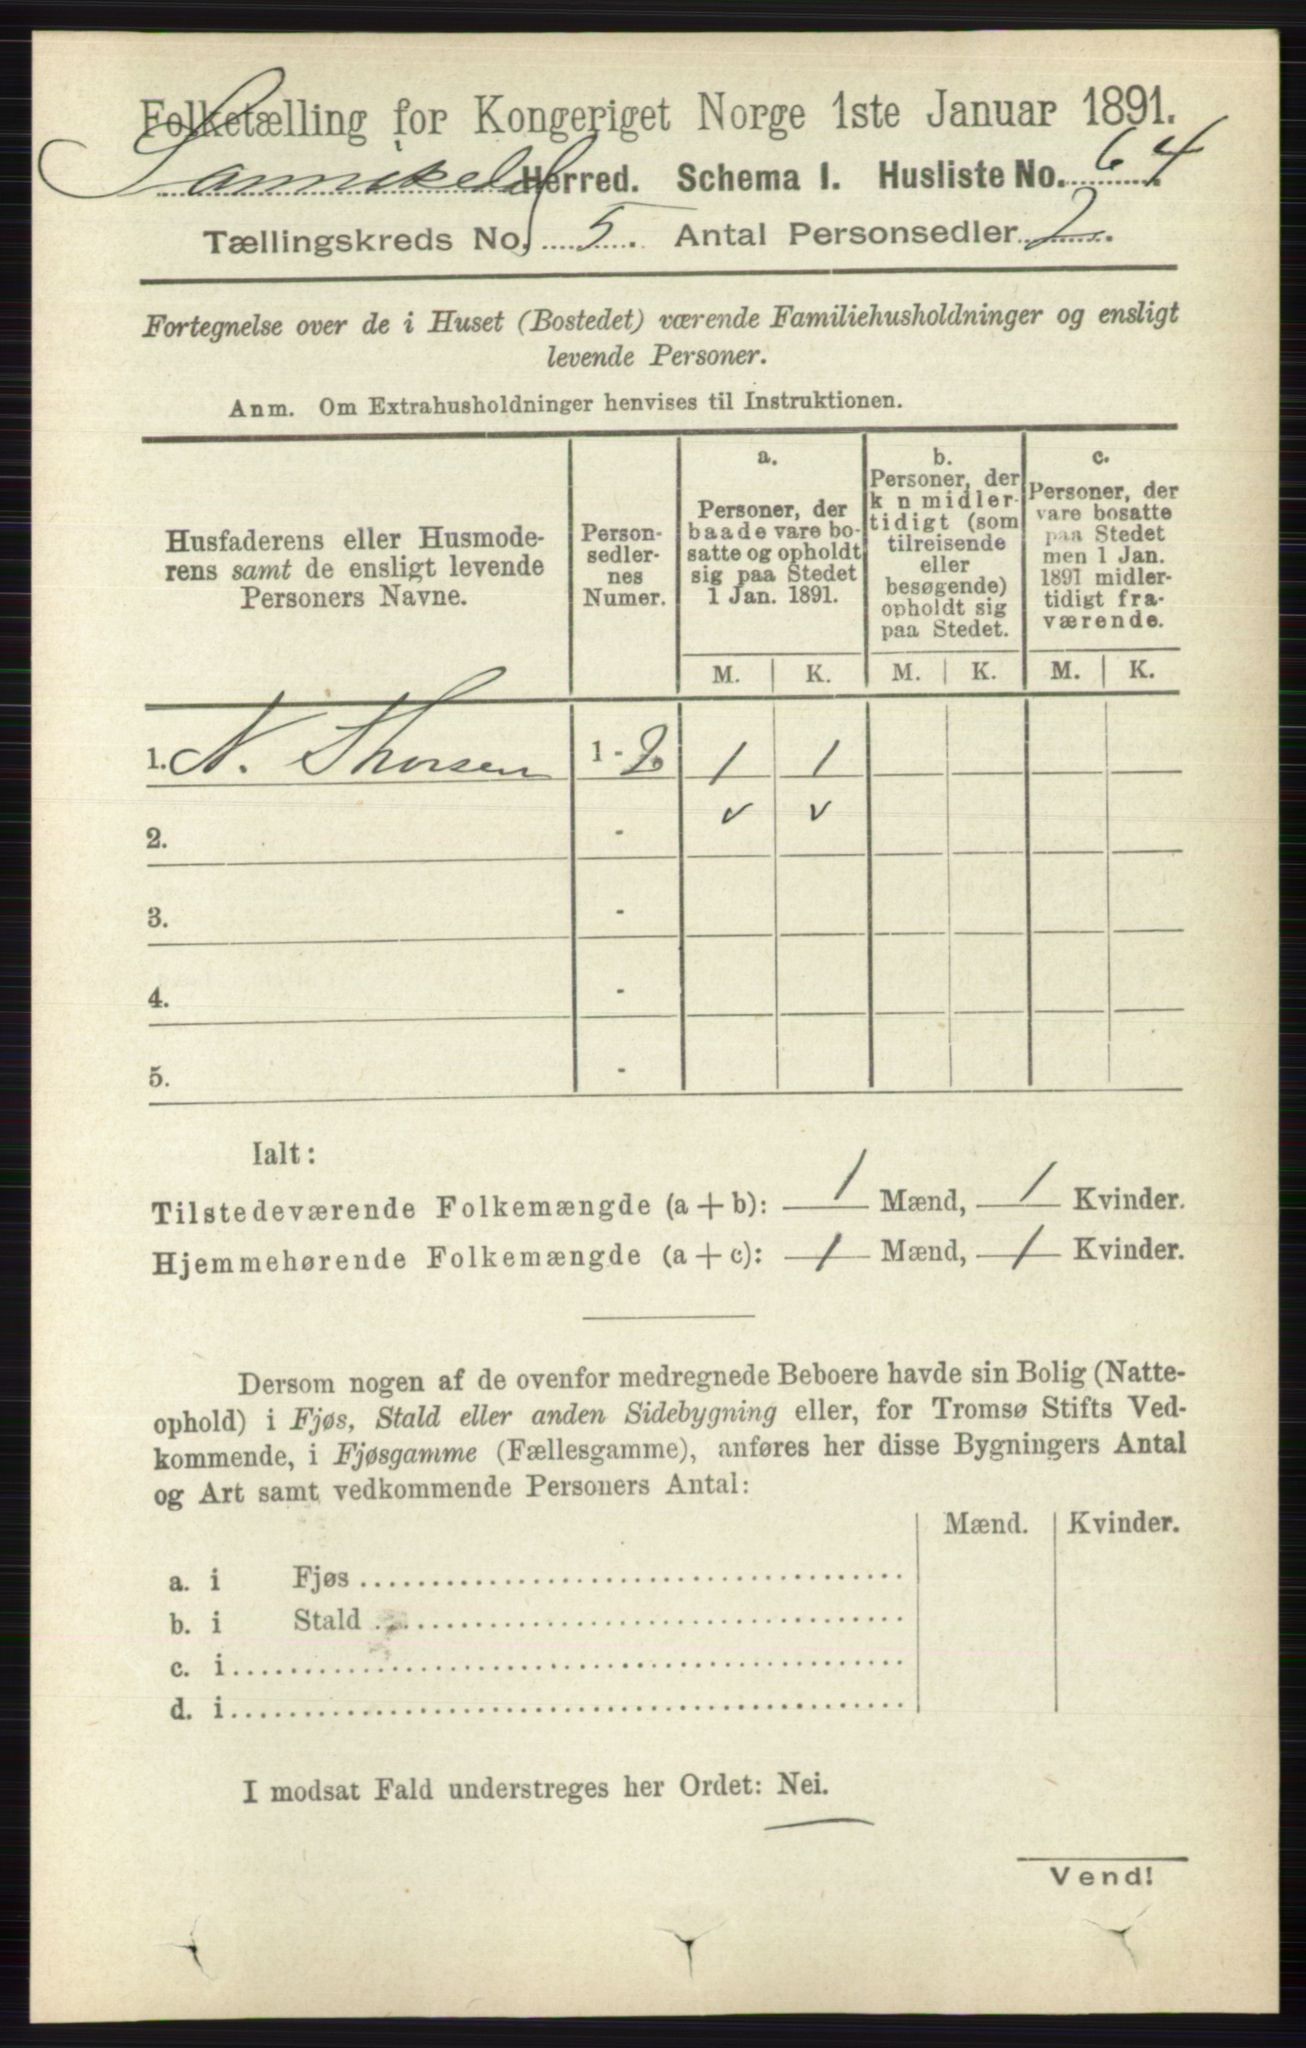 Folketælling for Kongeriget Norge 1ste Januar 1891.
Sannikedal Herred. Schema 1. Husliste No. 64.
Tællingskreds No. 5. Antal Personsedler 2.
Fortegnelse over de i Huset (Bostedet) værende Familiehusholdninger og ensligt
levende Personer.
Anm. Om Extrahusholdninger henvises til Instruktionen.
Husfaderens eller Husmode-
rens samt de ensligt levende
Personers Navne.
Person-
sedler-
nes
Numer.
a.
Personer, der
baade vare bo-
satte og opholdt
sig paa Stedet
1 Jan. 1891.
b.
Personer, der
k n midler-
tidigt (som
tilreisende
eller
besøgende)
opholdt sig
paa Stedet.
c.
Personer, der
vare bosatte
paa Stedet
men 1 Jan.
1891 midler-
tidigt fra-
værende.
M. K. M. K. M. K.
1. N. Thorsen 1 - 2. 1 1
2. - v v
3. -
4. -
5. -
Ialt:
Tilstedeværende Folkemængde (a + b): 1 Mænd, 1 Kvinder.
Hjemmehørende Folkemængde (a + c): 1 Mænd, 1 Kvinder.
Dersom nogen af de ovenfor medregnede Beboere havde sin Bolig (Natte-
ophold) i Fjøs, Stald eller anden Sidebygning eller, for Tromsø Stifts Ved-
kommende, i Fjøsgamme (Fællesgamme), anføres her disse Bygningers Antal
og Art samt vedkommende Personers Antal:
Mænd. Kvinder.
a. i Fjøs
b. i Stald
c. i
d. i
I modsat Fald understreges her Ordet: Nei.
Vend!